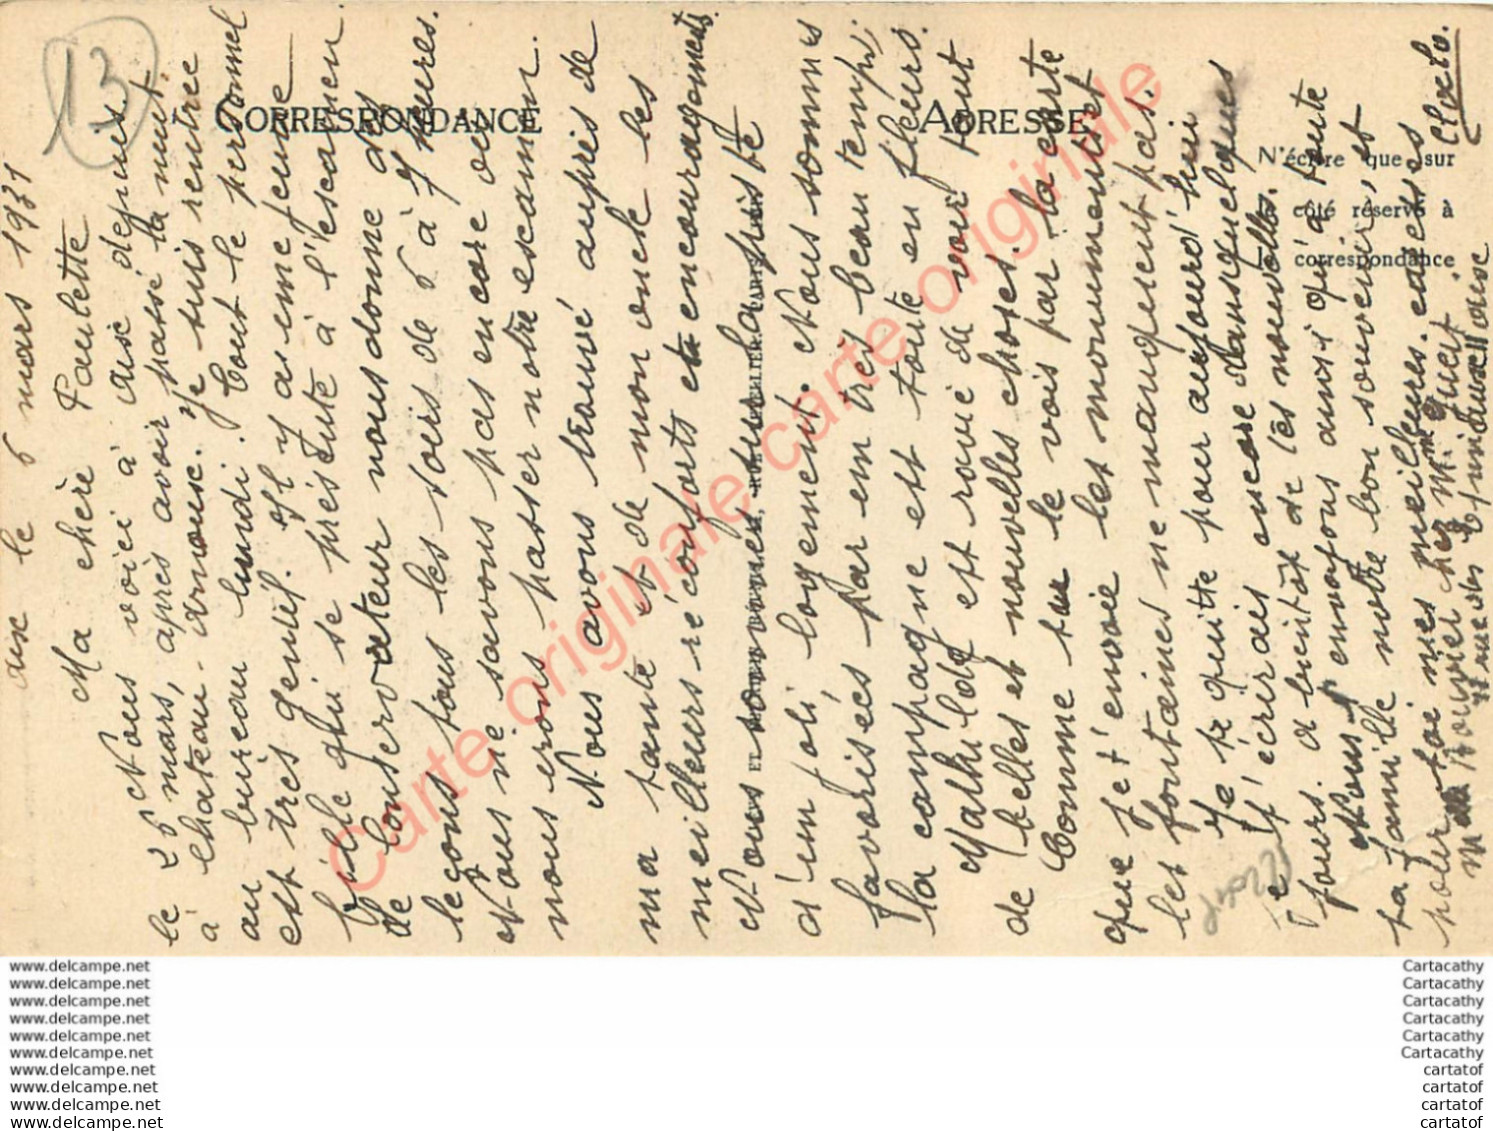 13
aix le 6 mars 1931
Ma chère Paulette
Nous voici à aix depuis
le 2 mars, après avoir passé la nuit
à chateau-Arnoux. Je suis rentrée
au bureau lundi. Tout le personnel
est très gentil. Il y a une jeune
fille qui se présente à l'escamen.
le Conservateur nous donne des
leçons tous les soirs de 6 à 7 heures.
Nous ne savons pas encore où
nous irons passer notre escamen.
Nous avons trouvé auprès de
ma tante et de mon oncle les
meilleurs réconforts et encouragements.
Nous sommes la puis té
d'un joli logement. Nous sommes
favorisées par un très beau temps,
la campagne est toute en fleurs.
Mathilde est ravie de voir tout
de belles et nouvelles choses.
Comme tu le vois par la carte
que je t'envoie les monuments et
les fontaines ne manquent pas.
Je te quitte pour aujourd'hui
je t'écrirais encore dans quelques
jours. a bientôt de tes nouvelles.
Nous t'envoyons ainsi qu'à toute
ta famille notre bon souvenir, et
pour toi mes meilleures caresses
Cloclo.
chez Mme
rue des
CORRESPONDANCE
ADRESSE
N'écrire que sur
le côté réservé à
la correspondance
Carte originale carte originale carte originale
www.delcampe.net
www.delcampe.net
www.delcampe.net
www.delcampe.net
www.delcampe.net
www.delcampe.net
www.delcampe.net
www.delcampe.net
www.delcampe.net
www.delcampe.net
Cartacathy
Cartacathy
Cartacathy
Cartacathy
Cartacathy
Cartacathy
cartatof
cartatof
cartatof
cartatof